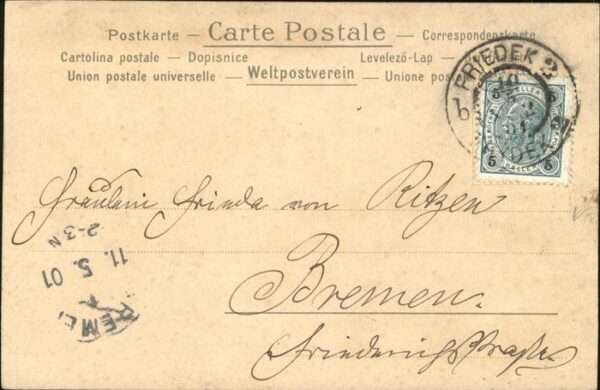 Postkarte — Carte Postale — Correspondenzkarte
Cartolina postale — Dopisnice Levelező-Lap —
Union postale universelle — Weltpostverein — Unione
FRIEDEK 2
b
10
5
01
5 5
Fräulein Frieda von Ritzen
Bremen.
Friedrichstraße
2-3 N
11. 5. 01
BREME